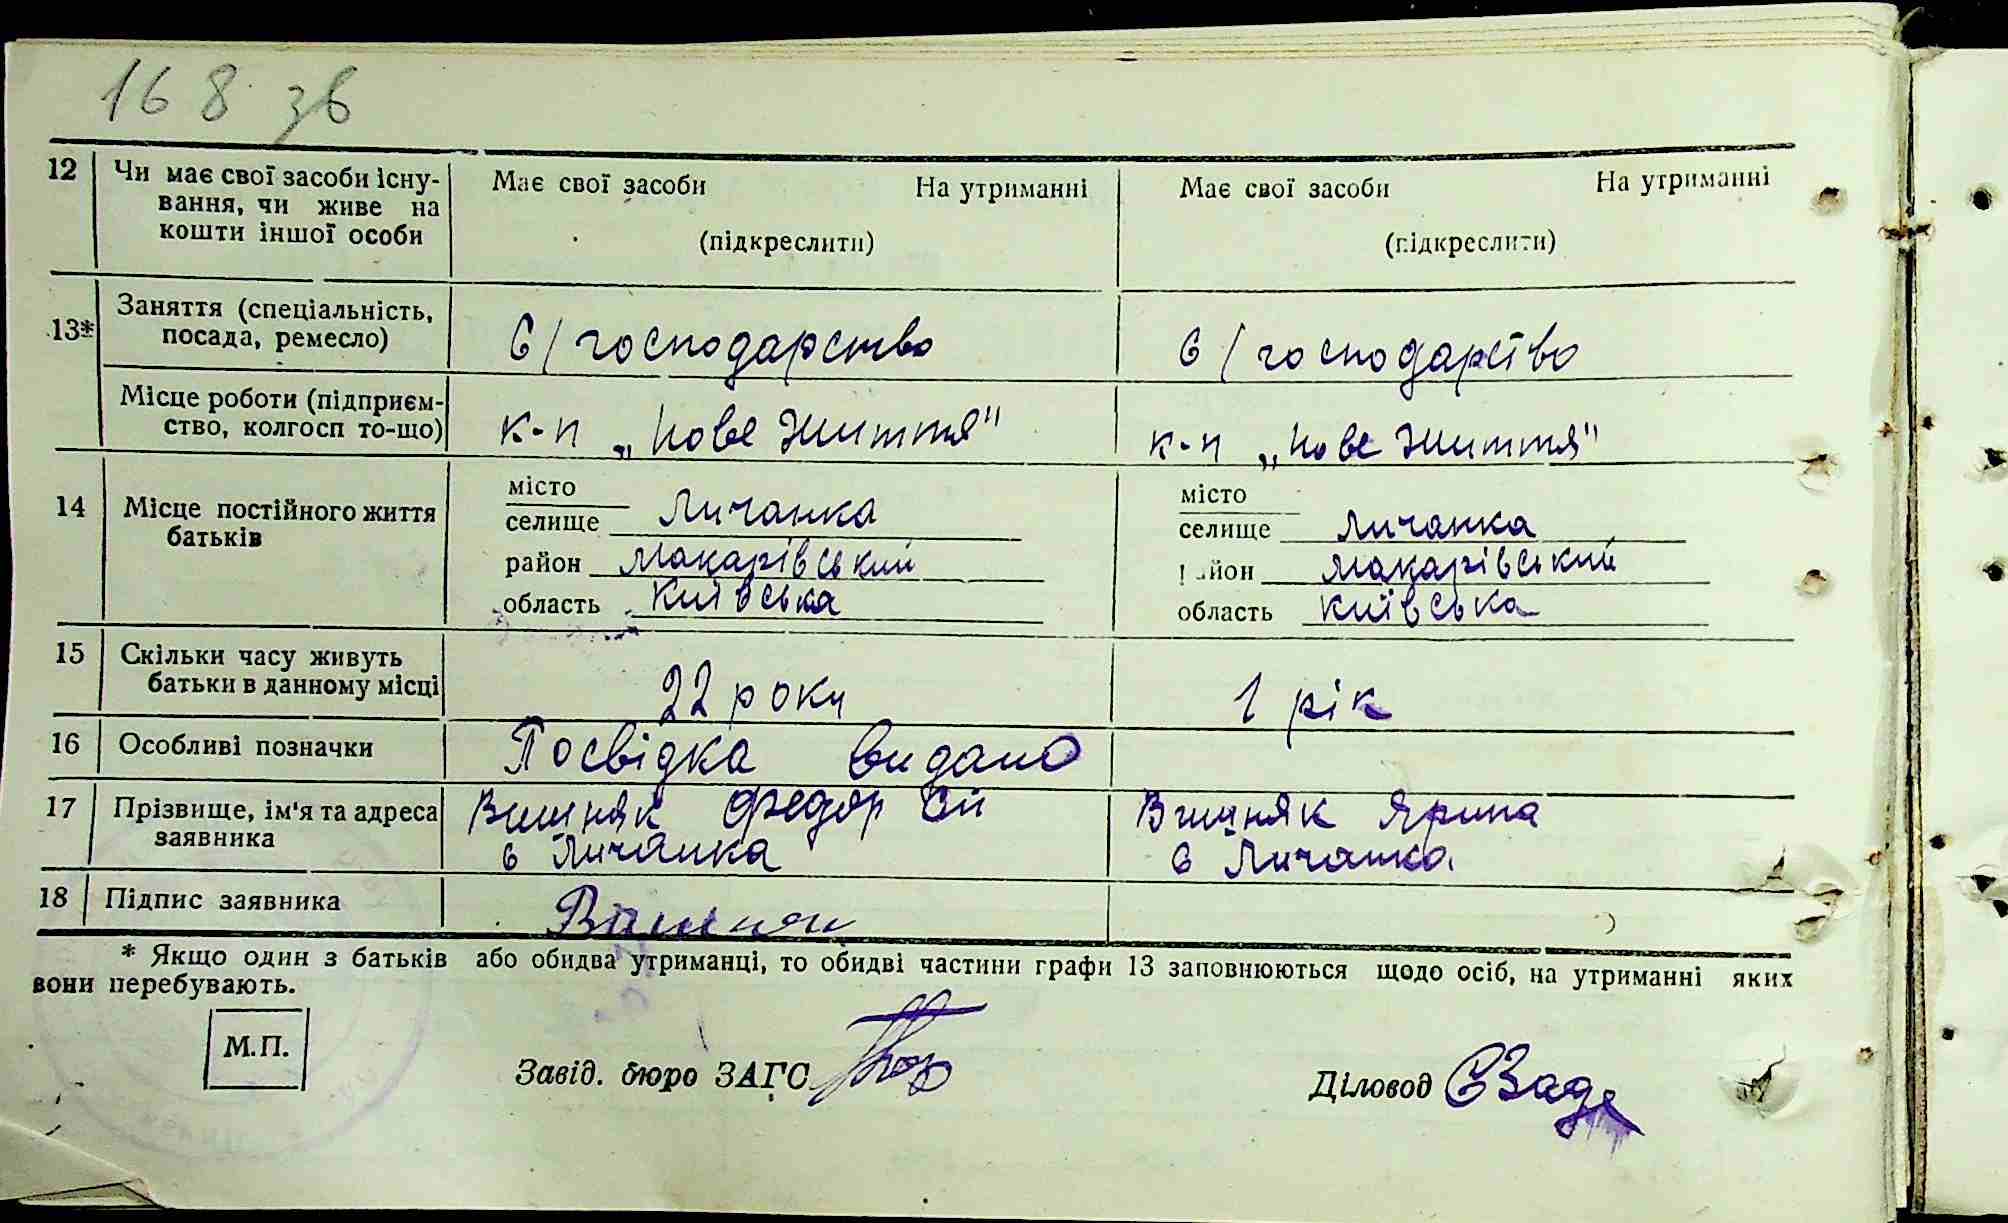 168 зв
12 Чи має свої засоби існу-
вання, чи живе на
кошти іншої особи
Має свої засоби На утриманні
(підкреслити)
Має свої засоби На утриманні
(підкреслити)
13* Заняття (спеціальність,
посада, ремесло)
С/господарство
С/господарство
Місце роботи (підприєм-
ство, колгосп то-що)
к-п „Нове життя"
к-п „Нове життя"
14 Місце постійного життя
батьків
місто
селище Личанка
район Макарівський
область Київська
місто
селище Личанка
район Макарівський
область Київська
15 Скільки часу живуть
батьки в данному місці
22 роки
1 рік
16 Особливі позначки
Посвідка видано
17 Прізвище, ім'я та адреса
заявника
Вишняк Федор
с Личанка
Вишняк Ярина
с Личанка
18 Підпис заявника
Вишняк
* Якщо один з батьків або обидва утриманці, то обидві частини графи 13 заповнюються щодо осіб, на утриманні яких
вони перебувають.
М.П.
Завід. бюро ЗАГС
Діловод